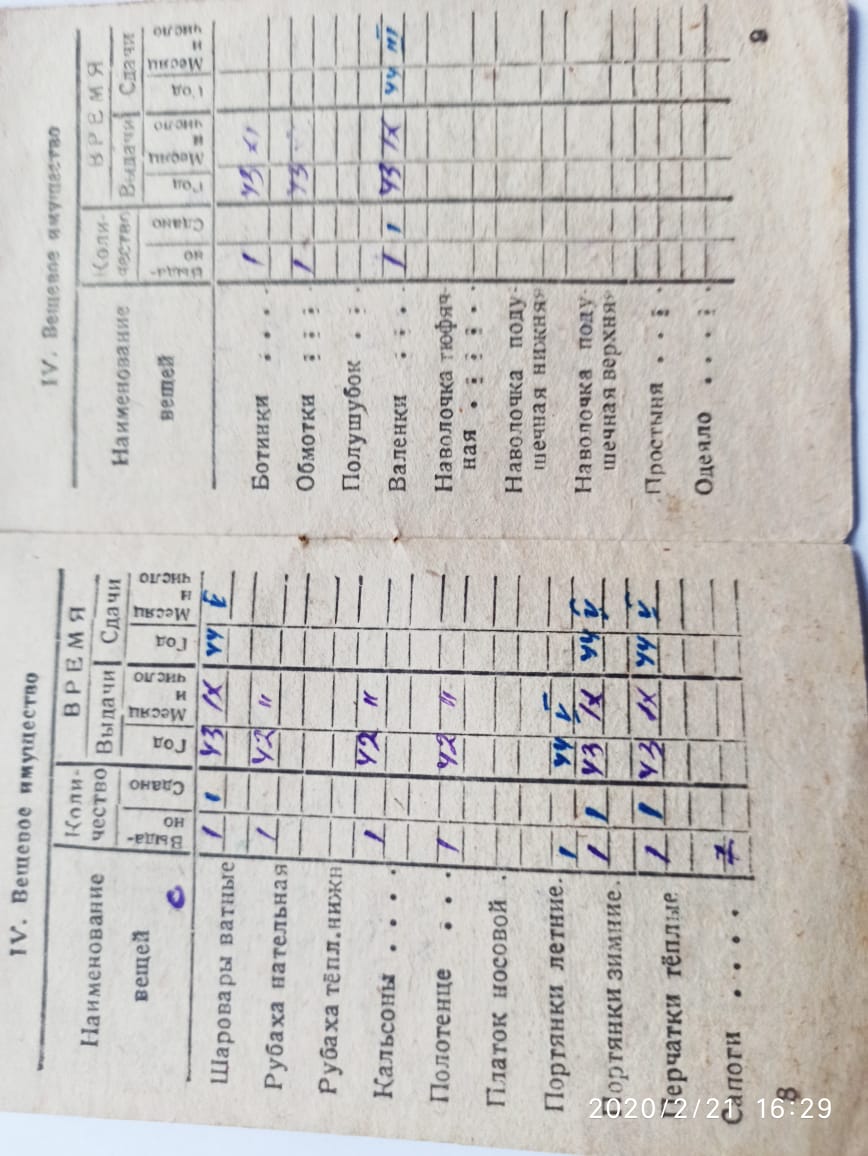 IV. Вещевое имущество
Наименование вещей | Количество | ВРЕМЯ
Выдано | Сдано | Выдачи | Сдачи
Год | Месяц и число | Год | Месяц и число
Шаровары ватные 1 1 43 IX 44
Рубаха нательная 1 42 "
Рубаха тёпл. нижн
Кальсоны . . . . 1 42 "
Полотенце . . . 1 42 "
Платок носовой .
Портянки летние. 1 44 V
Портянки зимние. 1 1 43 IX 44 V
Перчатки тёплые 1 1 43 IX 44 V
Сапоги . . . . .
8
IV. Вещевое имущество
Наименование вещей | Количество | ВРЕМЯ
Выдано | Сдано | Выдачи | Сдачи
Год | Месяц и число | Год | Месяц и число
Ботинки . . . . 1 43 XI
Обмотки 1 43
Полушубок . .
Валенки . . . 1 1 43 IX 44 III
Наволочка тюфяч-
ная . . . . . .
Наволочка поду-
шечная нижняя
Наволочка поду-
шечная верхняя
Простыня . . .
Одеяло . . . . .
9
2020/2/21 16:29